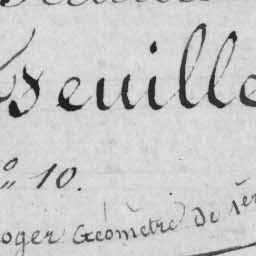 Feuille
o 10.
oger Géomètre de 1èr